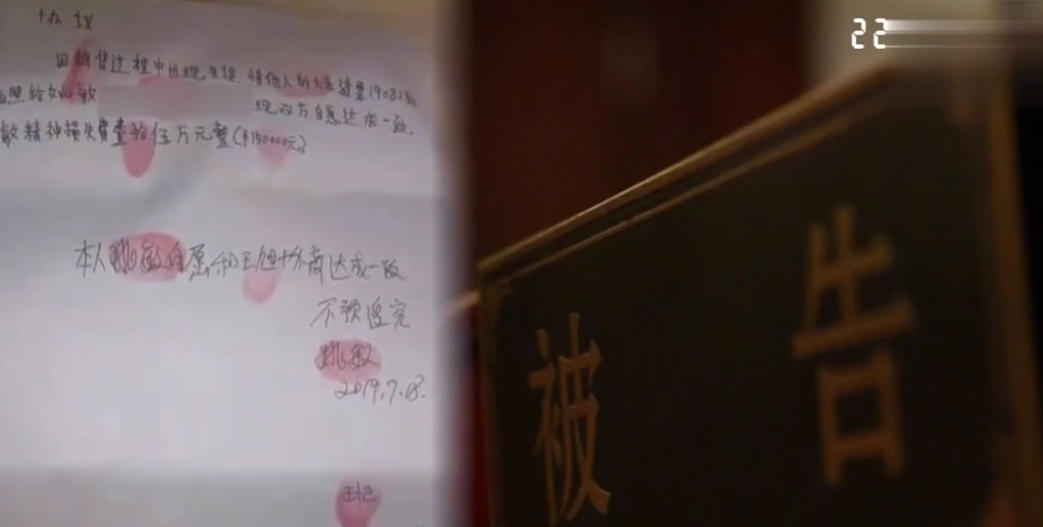 协议
因销售过程中出现失误,将他人的大乐透票19082期
照给姚敏 现双方自愿达成一致,
敏精神损失费壹拾伍万元整(¥150000元)
本人姚敏自愿和王旭协商达成一致
不预追究
姚敏
2019.7.
王旭
22
被告